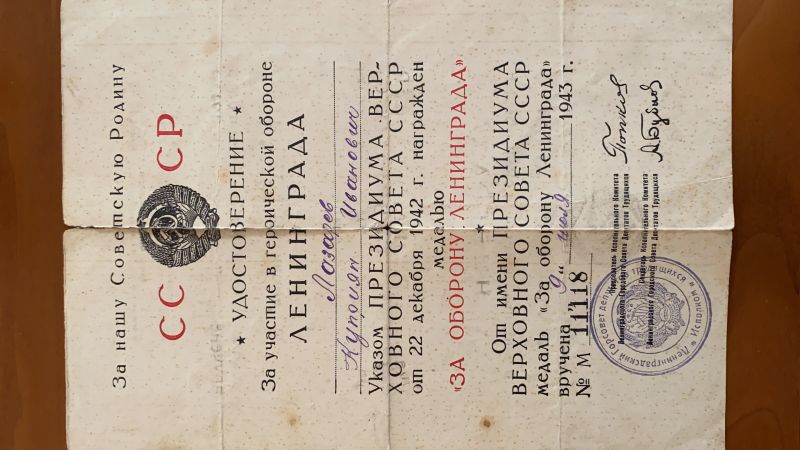 За нашу Советскую Родину
СССР
★ УДОСТОВЕРЕНИЕ ★
За участие в героической обороне
ЛЕНИНГРАДА
Лазарев
Иванович
Указом ПРЕЗИДИУМА ВЕР-
ХОВНОГО СОВЕТА СССР
от 22 декабря 1942 г. награжден
медалью
«ЗА ОБОРОНУ ЛЕНИНГРАДА»
От имени ПРЕЗИДИУМА
ВЕРХОВНОГО СОВЕТА СССР
медаль «За оборону Ленинграда»
вручена 9 " июля 1943 г.
№ М 11118
Председатель Исполнительного Комитета
Ленинградского Городского Совета Депутатов Трудящихся
Попков
Секретарь Исполнительного Комитета
Ленинградского Городского Совета Депутатов Трудящихся
А Бубнов
Ленинградский Горсовет деп. трудящихся * Исполком *